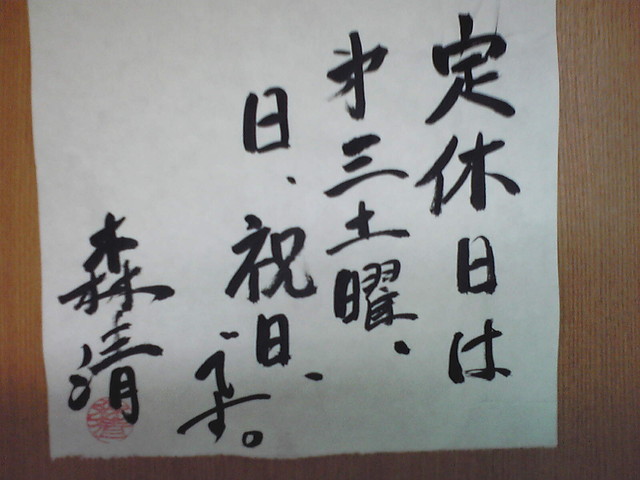 定休日は
第三土曜、
日、祝日、
です。
森清